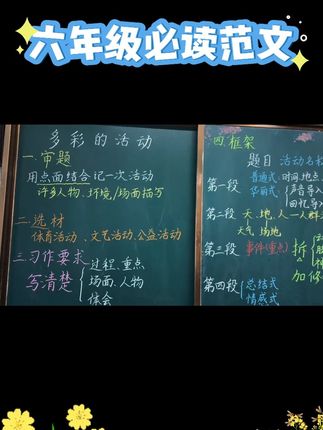 六年级必读范文
多彩的活动
一.审题
用点面结合记一次活动
许多人物、环境/场面描写
二.选材
体育活动、文艺活动、公益活动
三.习作要求
写清楚
过程、重点
场面、人物
体会
四.框架
题目 活动名称
第一段
普通式:时间、地点
华丽式:(声音导
回忆导
第二段 天、地、人—人群
天气 场地
第三段 事件(重点) 拆
加修
第四段
总结式
情感式